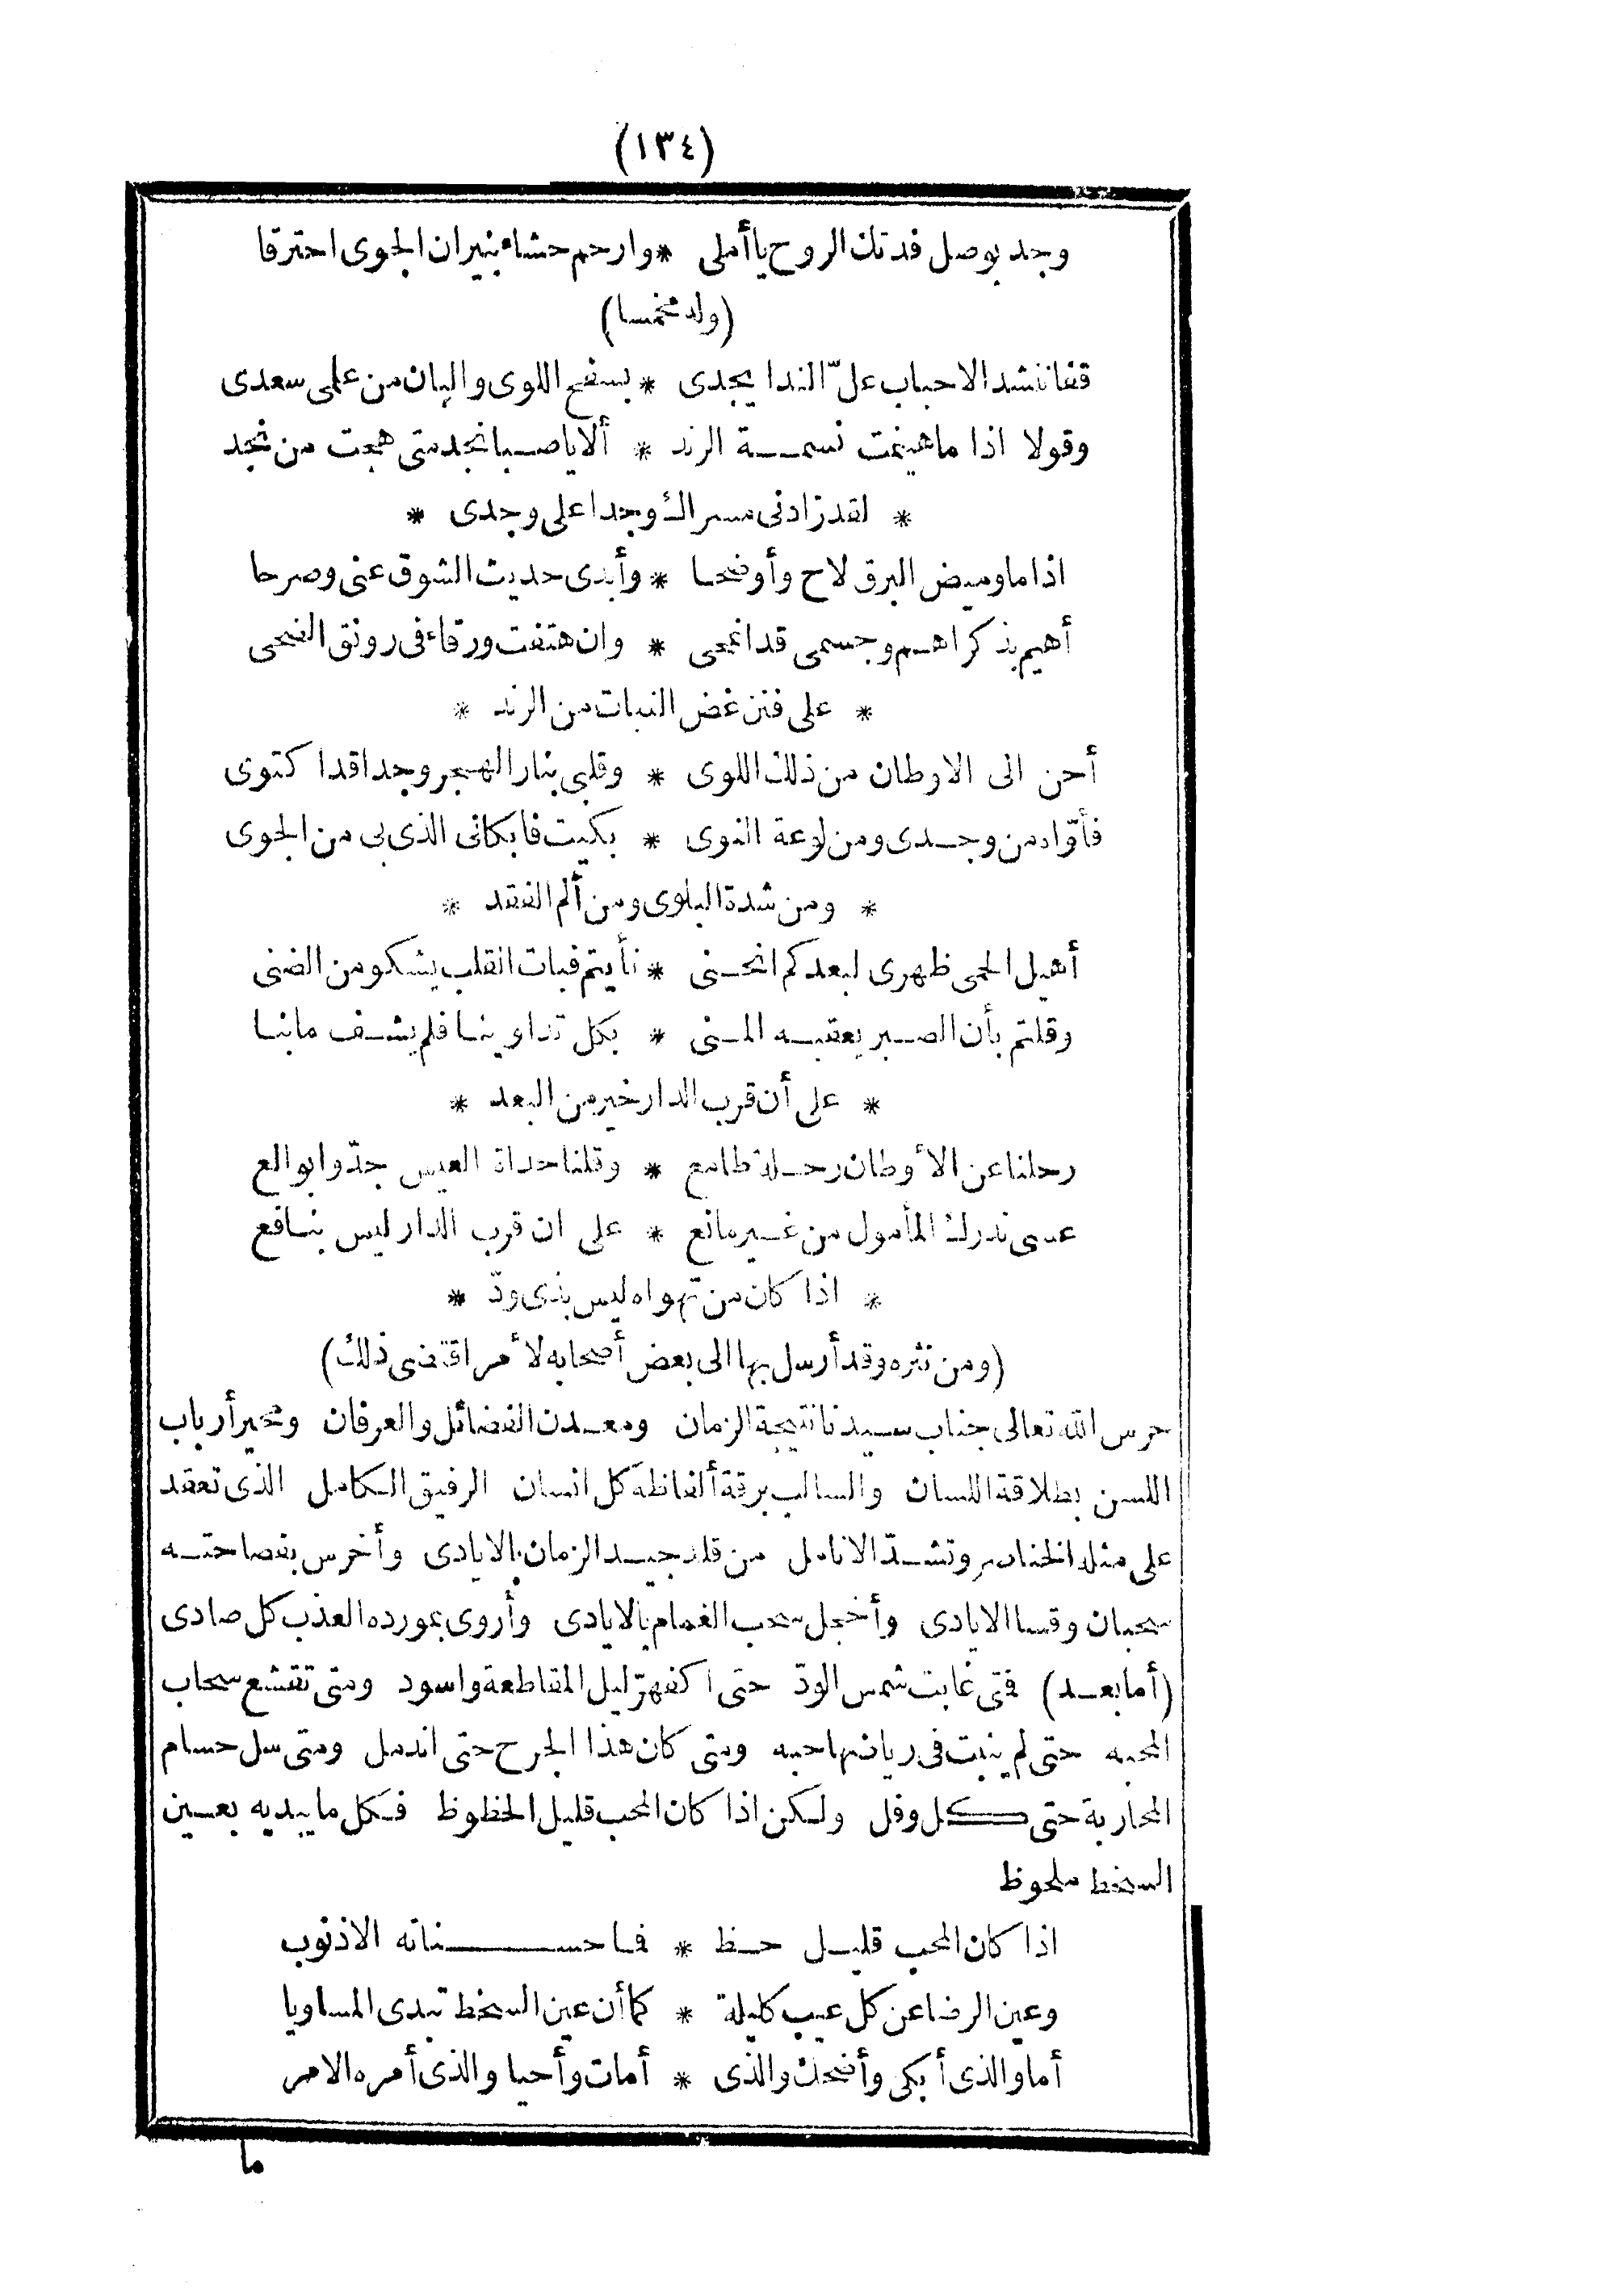 (١٣٤)
وجد بوصل فدتك الروح يا أملى * وارحم حشاء بنيران الجوى احترقا
(وله مخمسا)
قفا ننشد الاحباب علّ الندا يجدى * بسفح اللوى والبان من علمى سعدى
وقولا اذا ما هينمت نسمة الرند * ألا يا صبا نجد متى هجت من نجد
* لقد زادنى مسراك وجدا على وجدى *
اذا ما وميض البرق لاح وأوضحا * وأبدى حديث الشوق عنى وصرحا
أهيم بذكراهم وجسمى قد انمحى * وان هتفت ورقاء فى رونق الضحى
* على فنن غض النبات من الرند *
أحن الى الاوطان من ذلك اللوى * وقلبى بنار الهجر وجدا قد اكتوى
فأوّاه من وجدى ومن لوعة النوى * بكيت فابكانى الذى بى من الجوى
* ومن شدة البلوى ومن ألم الفقد *
أهيل الحمى ظهرى لبعدكم انحنى * نأيتم فبات القلب يشكو من الضنى
وقلتم بأن الصبر يعقبه المنى * بكل تداوينا فلم يشف ما بنا
* على أن قرب الدار خير من البعد *
رحلنا عن الأوطان رحلة طامع * وقلنا حداة العيس جدّوا بوالع
عسى ندرك المأمول من غير مانع * على ان قرب الدار ليس بنافع
* اذا كان من تهواه ليس بذى ودّ *
(ومن نثره وقد أرسل بها الى بعض أصحابه لأمر اقتضى ذلك)
حرس الله تعالى جناب سيدنا نتيجة الزمان ومعدن الفضائل والعرفان ومحير أرباب
اللسن بطلاقة اللسان والسالب برقة ألفاظه كل انسان الرفيق الكامل الذى تعقد
على مثله الخناصر وتشدّ الانامل من قلد جيد الزمان بالايادى وأخرس بفصاحته
سحبان وقسا الايادى وأخجل سحب الغمام بالايادى وأروى بمورده العذب كل صادى
(أما بعد) فمتى غابت شمس الودّ حتى اكفهرّ ليل المقاطعة واسود ومتى تقشع سحاب
المحبه حتى لم ينبت فى رياضها حبه ومتى كان هذا الجرح حتى اندمل ومتى سل حسام
المحاربة حتى كل وفل ولكن اذا كان المحب قليل الحظوظ فكل ما يبديه بعين
السخط ملحوظ
اذا كان المحب قليل حظ * فما حسناته الا ذنوب
وعين الرضا عن كل عيب كليلة * كما أن عين السخط تبدى المساويا
أما والذى أبكى وأضحك والذى * أمات وأحيا والذى أمره الامر
ما